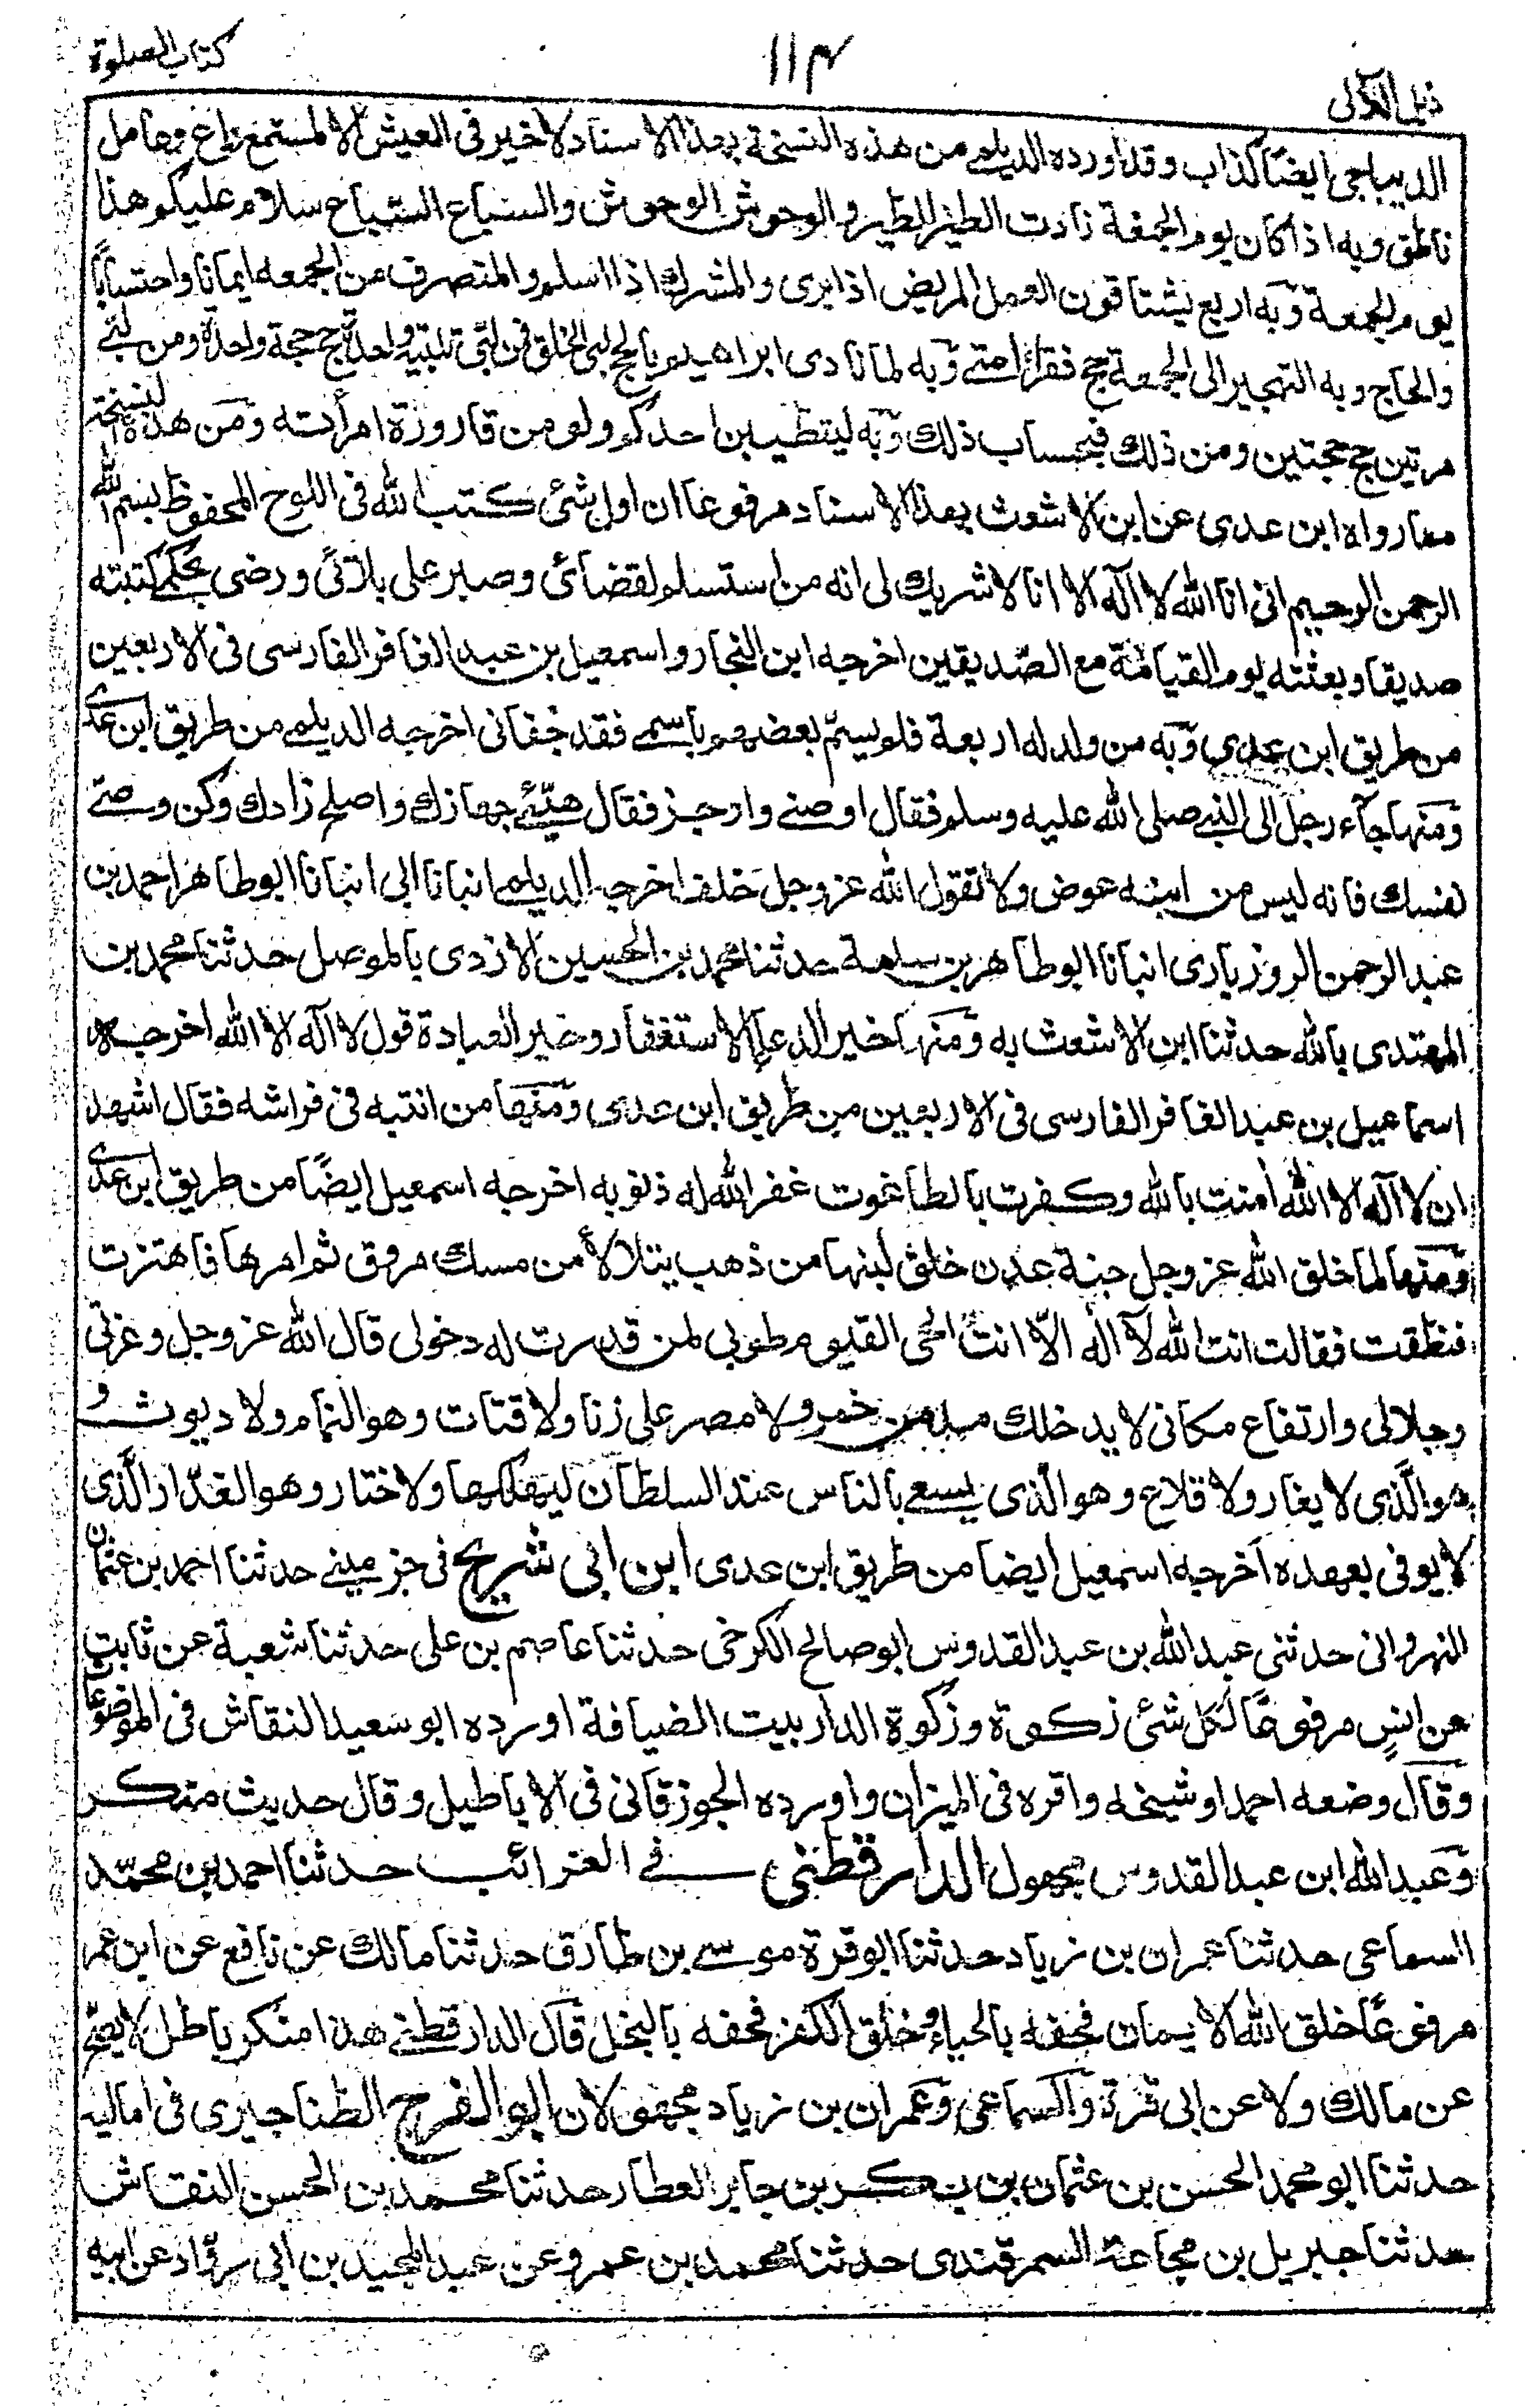 ذيل اللآلى
١١٣
كتاب الصلوة
الديباجى ايضًا كذاب وقد اورده الديلمے من هذه النسخة بهذا الاسناد لاخير فى العيش الا لمستمع واع وعامل
ناطق وبه اذا كان يوم الجمعة نادت الطير الطير والوحوش الوحوش والسباع السباع سلام عليكم هذا
يوم الجمعة وَبه اربع يشتاقون العمل المريض اذا برى والمشرك اذا اسلم والمتصرف من الجمعه ايمانا واحتسابًا
والحاج وبه التهجير الى الجمعة حج فقراء امتے وَبه لما نادى ابراهيم بالحج لبى الخلق فمن لبّى تلبيه واحدة حج حجة واحدة ومن لبّے
مرتين حج حجتين ومن ذلك فبحساب ذلك وَبه ليتطيبن احدكم ولو من قارورة امرأته وَمن هذه النسخة
مما رواه ابن عدى عن ابن الاشعث بهذا الاسناد مرفوعا ان اول شئ كتب الله فى اللوح المحفوظ بسم الله
الرحمن الرحيم انى انا الله لا آله الا انا لا شريك لى انه من استسلم لقضائ وصبر على بلائى ورضى بحكمے كتبته
صديقا وبعثته يوم القيامة مع الصّديقين اخرجه ابن النجار واسمعيل بن عبد الغافر الفارسى فى الاربعين
من طريق ابن عدى وَبه من ولد له اربعة فلم يسمّ بعضهم باسمے فقد جفانى اخرجه الديلمے من طريق ابن عدى
وَمنها جآء رجل الى النبے صلى الله عليه وسلم فقال اوصنے واوجز فقال هيّئ جهازك واصلح زادك وكن وصے
نفسك فانه ليس من امنه عوض ولا تقول الله عز وجل خلف اخرجه الديلمے انبانا ابى انبانا ابو طاهر احمد بن
عبد الرحمن الروزبارى انبانا ابو طاهر بن سلمة حدثنا محمد بن الحسين الازدى بالموصل حدثنا محمد بن
المهتدى بالله حدثنا ابن الاشعث به وَمنها خير الدعاء الاستغفار وخير العبادة قول لا آله الا الله اخرجه
اسماعيل بن عبد الغافر الفارسى فى الاربعين من طريق ابن عدى وَمنها من انتبه فى فراشه فقال اشهد
ان لا آله الا الله اٰمنت بالله وكفرت بالطاغوت غفر الله له ذنوبه اخرجه اسمعيل ايضًا من طريق ابن عدى
وَمنها لما خلق الله عز وجل جنة عدن خلق لبنها من ذهب يتلالأ من مسك مروق ثم امرها فاهتزت
فنطقت فقالت انت الله لآ آله الّا انت الحى القيوم طوبى لمن قدرت له دخولى قال الله عز وجل وعزتى
وجلالى وارتفاع مكانى لا يدخلك مدمن خمر ولا مصر على زنا ولا قتات وهو النمام ولا ديوث و
هو الَّذى لا يغار ولا قلاع وهو الّذى يسعے بالناس عند السلطان ليهلكها ولا ختار وهو الغدّار الَّذى
لا يوفى بعهده اَخرجه اسمعيل ايضا من طريق ابن عدى ابن ابى شريح فى جزء بيبے حدثنا احمد بن عثمان
النهروانى حدثنى عبد الله بن عبد القدوس ابو صالح الكرخى حدثنا عاصم بن على حدثنا شعبة عن ثابت
عن انسٍ مرفوعًا لكل شئ زكوة وزكوة الدار بيت الضيافة اورده ابو سَعيد النقاش فى الموضوعا
وَقال وضعه احمد او شيخه واقره فى الميزان واورده الجوزقانى فى الاباطيل وقال حديث منكر
وَعبد الله ابن عبد القدوس مجهول الدارقطنى فے الغرائب حدثنا احمد بن محمّد
السماعى حدثنا عمران بن زياد حدثنا ابو قرة موسے بن طارق حدثنا مالك عن نافع عن ابن عمر
مرفوعًا خلق الله الايمان فحفه بالحياء وخلق الكفر فحفه بالبخل قَال الدارقطنے هذا منكر باطل لا يصح
عن مالك ولا عن ابى قرة وَالسماعى وَعمران بن زياد مجهولان ابو الفرج الطناجيرى فى اماليه
حدثنا ابو محمد الحسن بن عثمان بن بكر بن جابر العطار حدثنا محمد بن الحسن النقاش
حدثنا جبريل بن مجاعة السمرقندى حدثنا محمد بن عمرو عن عبد المجيد بن ابى روّاد عن ابيه